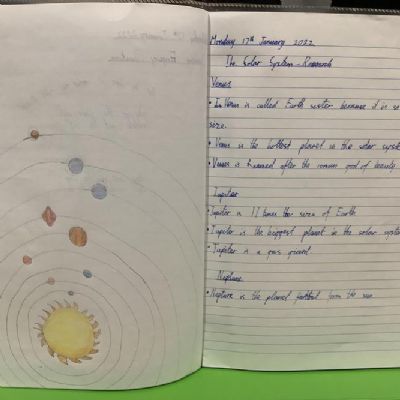 Monday 17th January 2022
The Solar System - Research
Venus
• Venus is called Earth sister because it is
size.
• Venus is the hottest planet in the solar syste
• Venus is named after the roman god of beauty
Jupiter
• Jupiter is 11 times the size of Earth
• Jupiter is the biggest planet in the solar syste
• Jupiter is a gas
Neptune
• Neptune is the planet from the sun